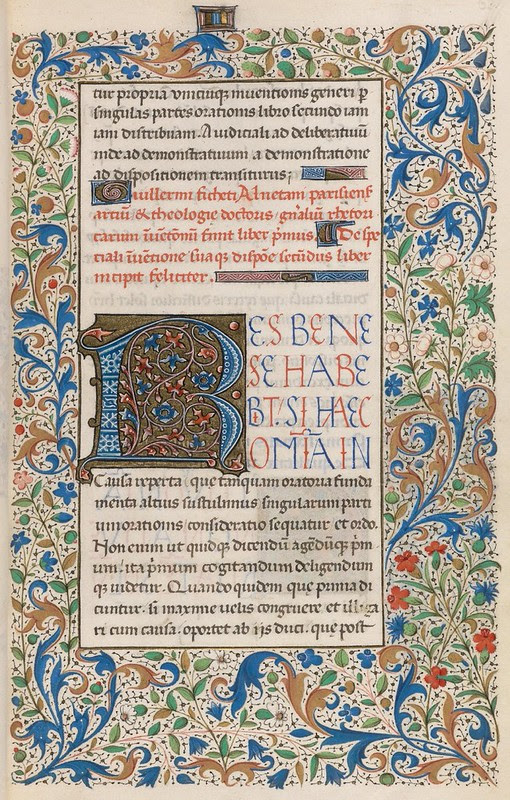 tur propria vniuscuiusq; inuentionis generi p
singulas partes orationis libro secundo iam
iam distribuam. A iudiciali ad deliberatiuũ
inde ad demonstratiuum a demonstratione
ad dispositionem transiturus;
Guillermi ficheti Alnetani parisiensis
artiũ & theologie doctoris gnaliũ rhetori
carum ĩuẽtionũ finit liber pͥmus. De spe
ciali ĩuẽtione suaq; dispõe secũdus liber
incipit feliciter.
RES BENE
SE HABE
BT. SI HAEC
OMĨA IN
Causa reperta que tanquam oratoria funda
menta altius sustulimus singularum parti
um orationis consideratio sequatur et ordo.
Non enim ut quidq; dicendũ agẽdũq; pͥm
um ita pͥmum cogitandum deligendum
q; uidetur. Quando quidem que prima di
cuntur. si maxime uelis congruere et
ri cum causa. oportet ab iis duci. que post